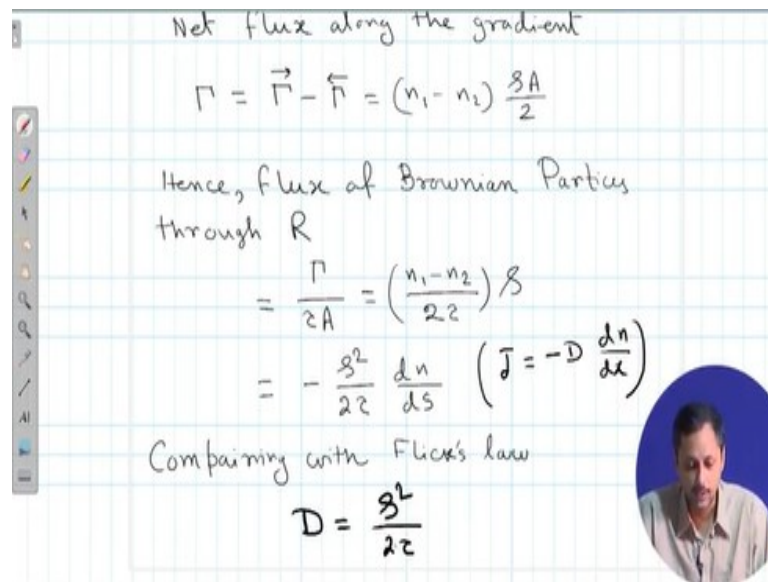 Net flux along the gradient
Γ = Γ⃗ - Γ⃖ = (n₁ - n₂) SA/2
Hence, flux of Brownian Partices
through R
= Γ/τA = (n₁-n₂/2τ) S
= - S²/2τ dn/ds (J̄ = -D dn/dx)
Compaining with Flick's law
D = S²/2τ
AI